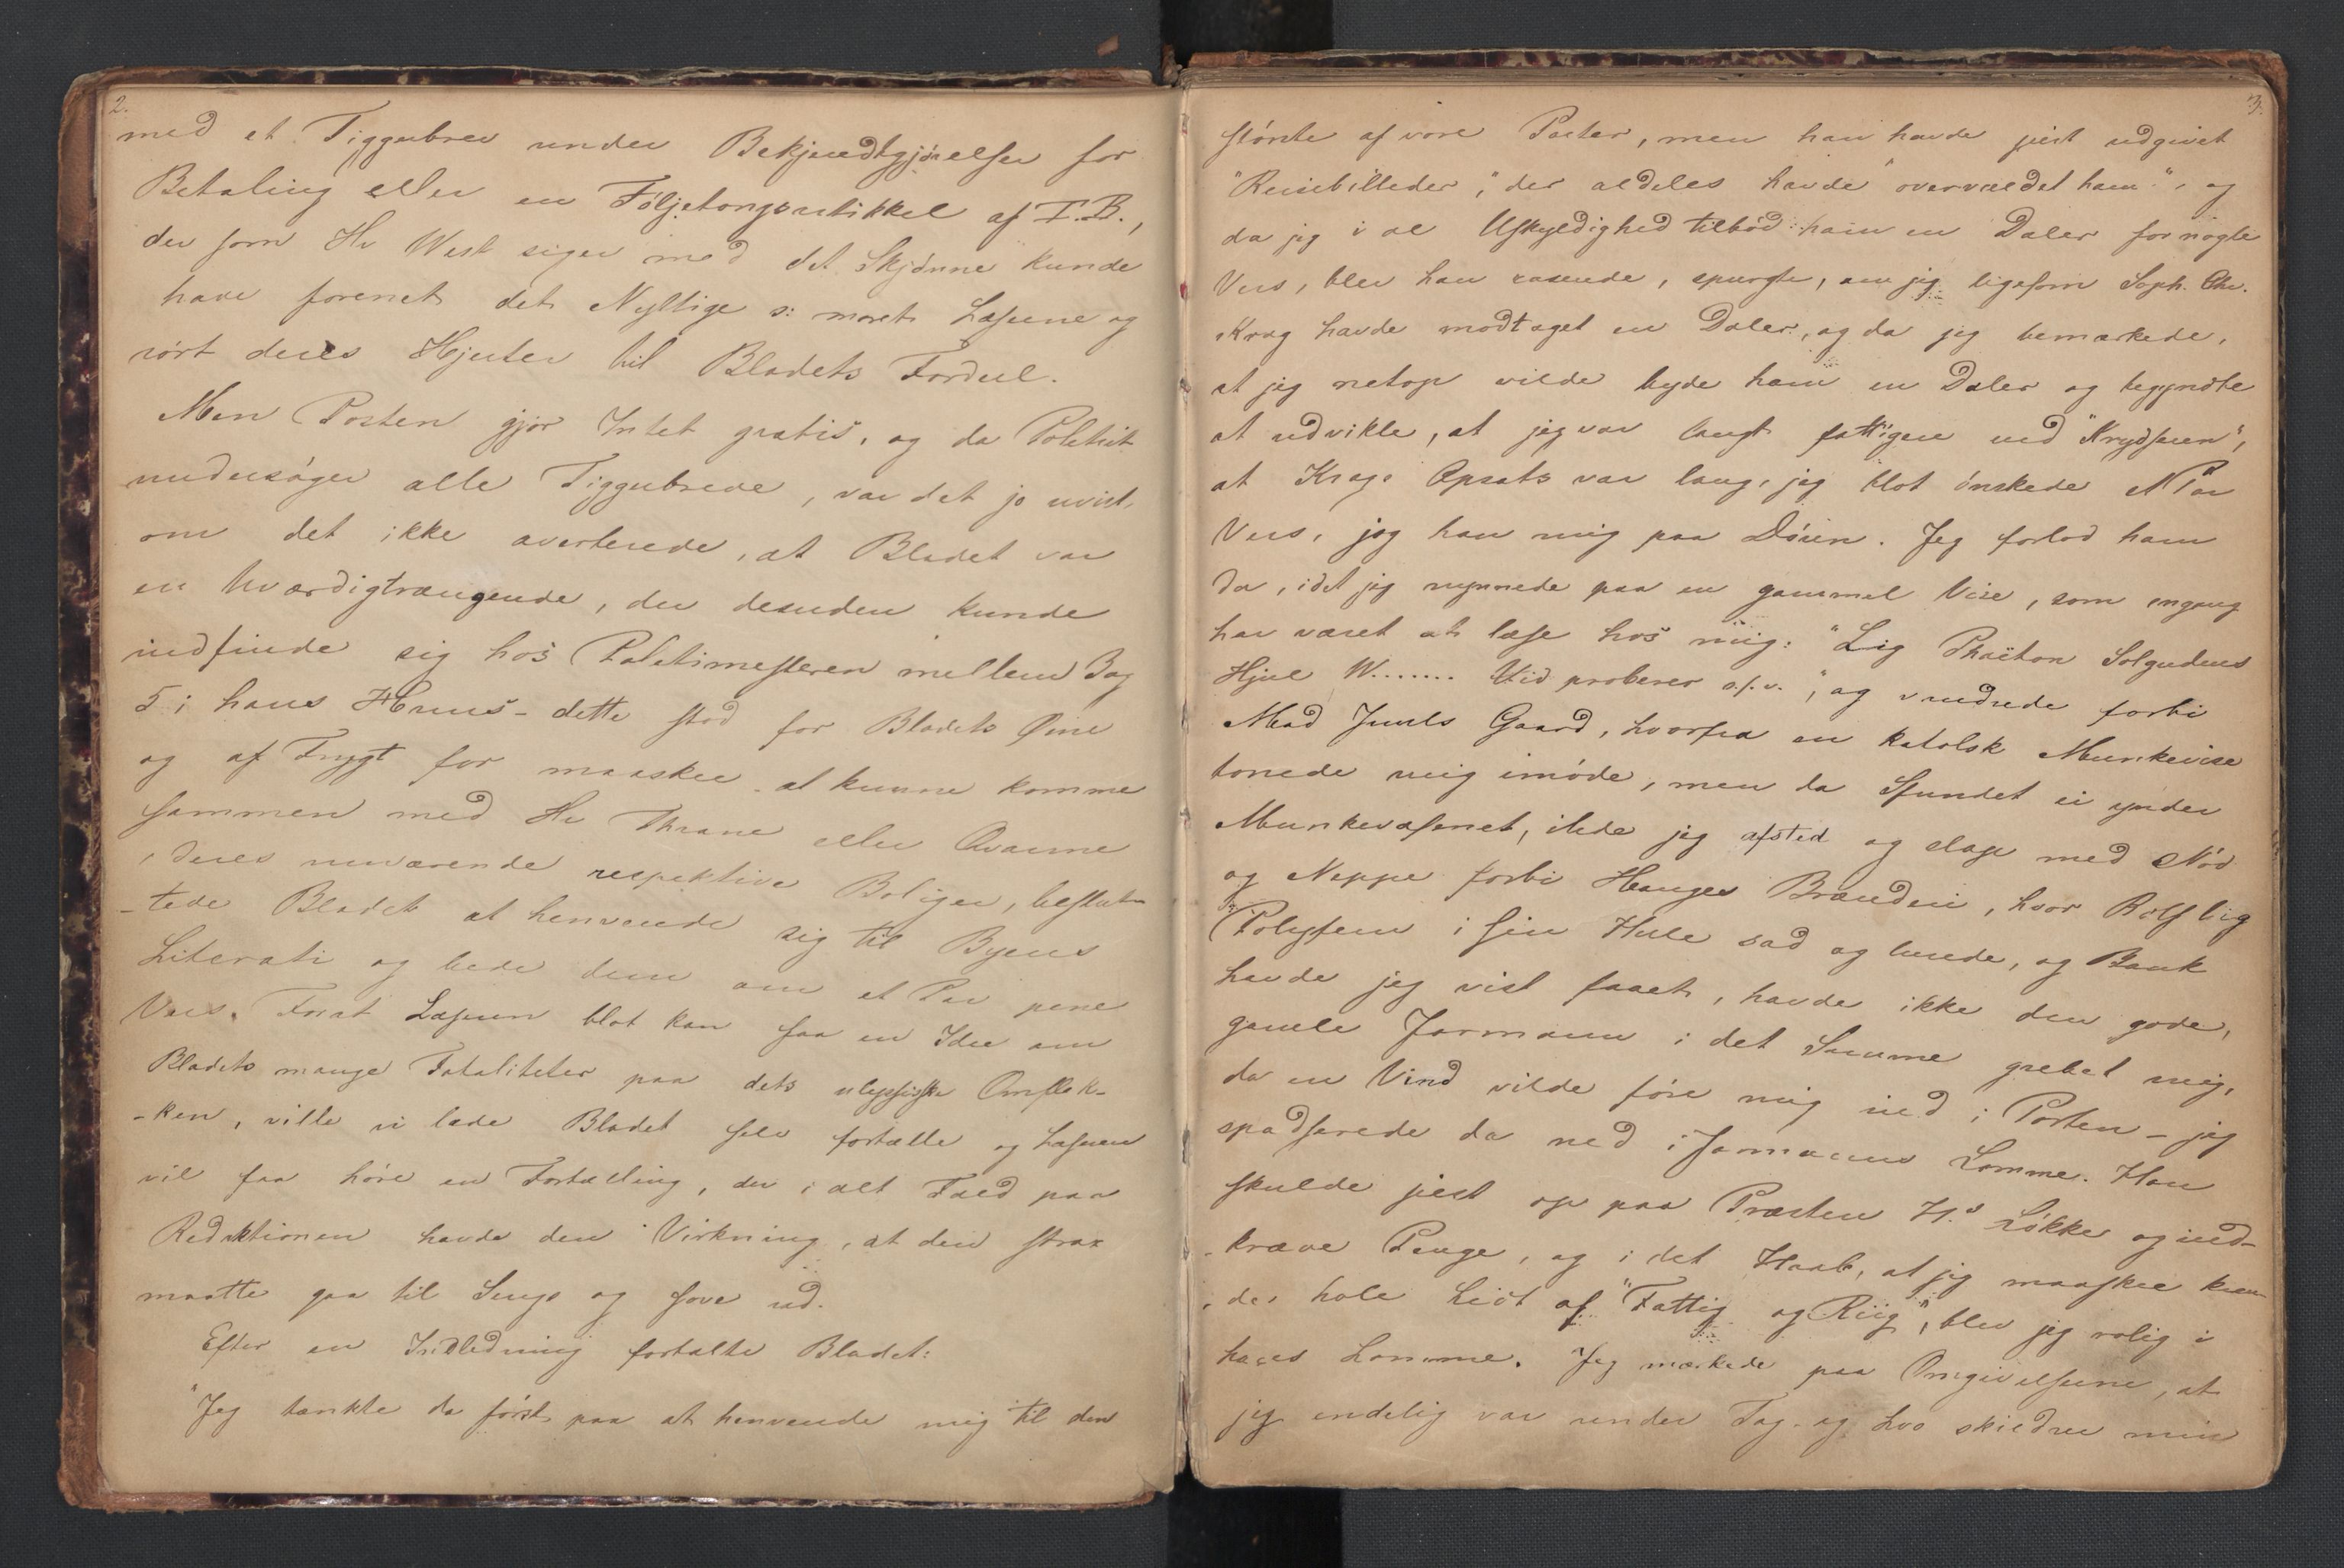 2.
med et Tiggerbrev under Bekjendtgjørelser for
Betaling eller en Føljetongartikkel af T.B.,
der som Hr West siger med det Skjønne kunde
have forenet det Nyttige ɔ: moret Læserne og
rørt deres Hjerter til Bladets Fordeel.
Men Posten gjør Intet gratis, og da Politiet
undersøger alle Tiggerbreve, var det jo uvist,
om det ikke averterede, at Bladet var
en Uværdigtrængende, der desuden kunde
indfinde sig hos Politimesteren mellem 3 og
5 i hans Huus – dette stod for Bladets Øine
og af Frygt for maaskee at kunne komme
sammen med Hr Thrane eller Qvarme
i deres nuværende respektive Boliger, beslut-
-tede Bladet at henvende sig til Byens
Literati og bede dem om et Par pene
Vers. Forat Læseren blot kan faa en Idee om
Bladets mange Fataliteter paa dets ulyssiske Omflak-
-ken, ville vi lade Bladet selv fortælle og Læseren
vil faa høre en Fortælling, der i alt Fald paa
Redaktionen havde den Virkning, at den strax
maatte gaa til Sengs og sove ud.
Efter en Indledning fortalte Bladet:
"Jeg tænkte da først paa at henvende mig til den
3.
største af vore Poeter, men han havde just udgivet
"Reisebilleder," der aldeles havde "overvældet ham", og
da jeg i al Uskyldighed tilbød ham en Daler for nogle
Vers, blev han rasende, spurgte, om jeg ligesom Soph. Chr.
Krag havde modtaget en Daler, og da jeg bemærkede,
at jeg netop vilde byde ham en Daler og begyndte
at udvikle, at jeg var langt fattigere end "Krydseren",
at Krags Opsats var lang, jeg blot ønskede et Par
Vers, jog han mig paa Døren. Jeg forlod ham
da, idet jeg nynnede paa en gammel Vise, som engang
har været at læse hos mig: "Lig Phaëton Solgudens
Hjul W....... Vid proberer o.s.v.", og vandrede forbi
Mad Juuls Gaard, hvorfra en katolsk Munkevise
tonede mig imøde, men da Sfundet ei ynder
Munkevæsenet, ilede jeg afsted og slap med Nød
og Neppe forbi Hauges Brænderi, hvor Rolf lig
Polyfem i sin Hule sad og lurede, og Bank
havde jeg vist faaet, havde ikke den gode,
gamle Jarmann i det Samme grebet mig,
da en Vind vilde føre mig ind i Porten – jeg
spadserede da ned i Jarmanns Lomme. Han
skulde just op paa Præsten H.s Løkke og ind-
-kræve Penge, og i det Haab, at jeg maaskee kun-
-de hale Lidt af "Fattig og Riig", blev jeg rolig i
hans Lomme. Jeg mærkede paa Omgivelserne, at
jeg endelig var under Tag, og hvo skildrer min